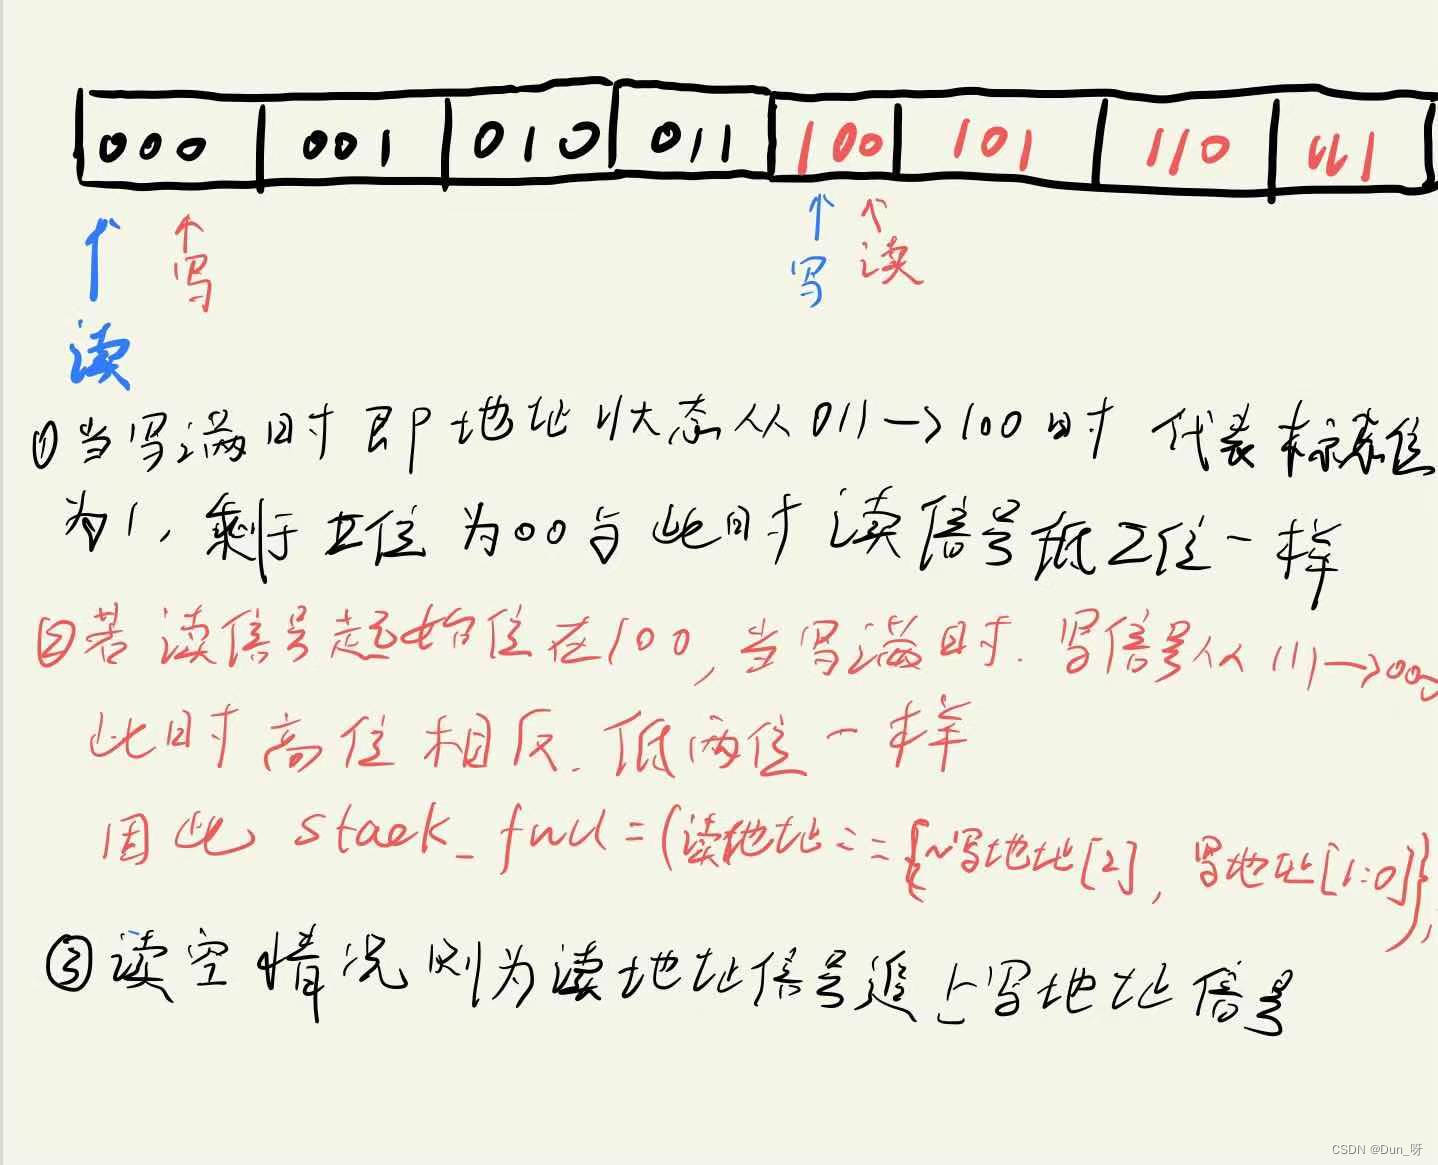 000 001 010 011 100 101 110 111
写 写 读
读
①当写满时即地址状态从011→100时 代表标志位
为1,剩于二位为00与此时读信号低2位一样
②若读信号起始位在100,当写满时.写信号从111→000
此时高位相反.低两位一样
因此 stack_full=(读地址=={~写地址[2],写地址[1:0]});
③读空情况则为读地址信号追上写地址信号
CSDN @Dun_呀